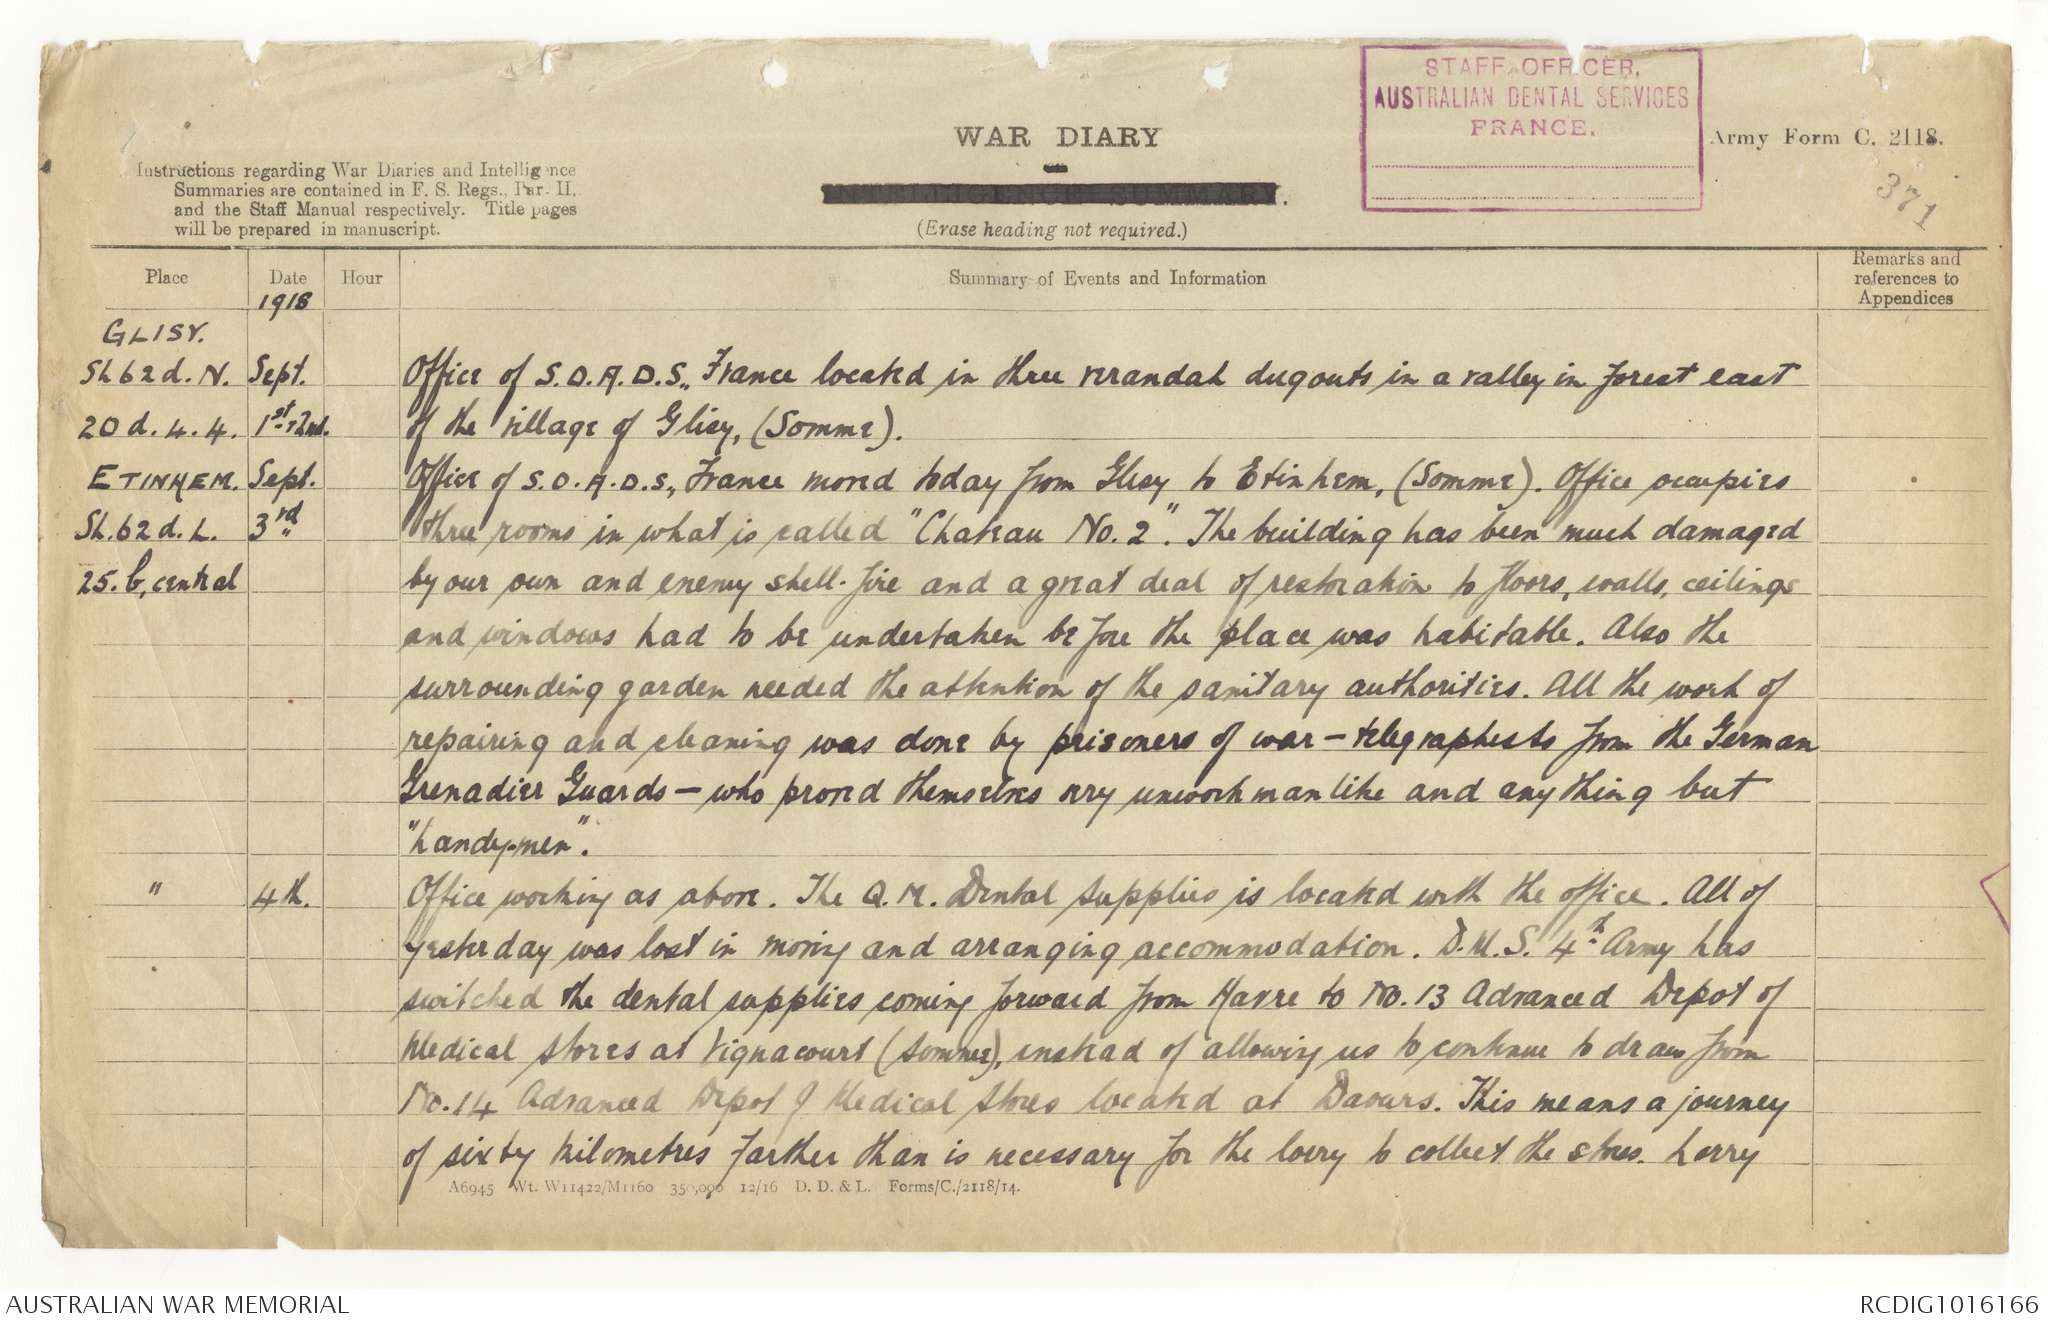 STAFF OFFICER,
AUSTRALIAN DENTAL SERVICES
FRANCE.
WAR DIARY
Army Form C. 2118.
371
Instructions regarding War Diaries and Intelligence
Summaries are contained in F. S. Regs., Part II,
and the Staff Manual respectively. Title pages
will be prepared in manuscript.
INTELLIGENCE SUMMARY.
(Erase heading not required.)
Place Date Hour Summary of Events and Information Remarks and references to Appendices
1918
GLISY.
Sh 62 d. N. Sept. Office of S.O.A.D.S., France located in three verandah dugouts in a valley in forest east
20 d. 4. 4. 1st-2nd. of the village of Glisy, (Somme).
ETINHEM. Sept. Office of S.O.A.D.S., France moved today from Glisy to Etinhem, (Somme). Office occupies
Sh. 62 d. L. 3rd three rooms in what is called "Chateau No. 2". The building has been much damaged
25. b, central by our own and enemy shell-fire and a great deal of restoration to floors, walls, ceilings
and windows had to be undertaken before the place was habitable. Also the
surrounding garden needed the attention of the sanitary authorities. All the work of
repairing and cleaning was done by prisoners of war - telegraphists from the German
Grenadier Guards - who proved themselves very unworkmanlike and anything but
"handy-men".
" 4th. Office working as above. The Q.M. Dental Supplies is located with the office. All of
yesterday was lost in moving and arranging accommodation. D.M.S. 4th Army has
switched the dental supplies coming forward from Havre to No. 13 Advanced Depot of
Medical Stores at Vignacourt (Somme), instead of allowing us to continue to draw from
No. 14 Advanced Depot of Medical Stores located at Daours. This means a journey
of sixty kilometres farther than is necessary for the lorry to collect the stores. Lorry
A6945 Wt. W11422/M1160 350,000 12/16 D. D. & L. Forms/C./2118/14.
AUSTRALIAN WAR MEMORIAL
RCDIG1016166